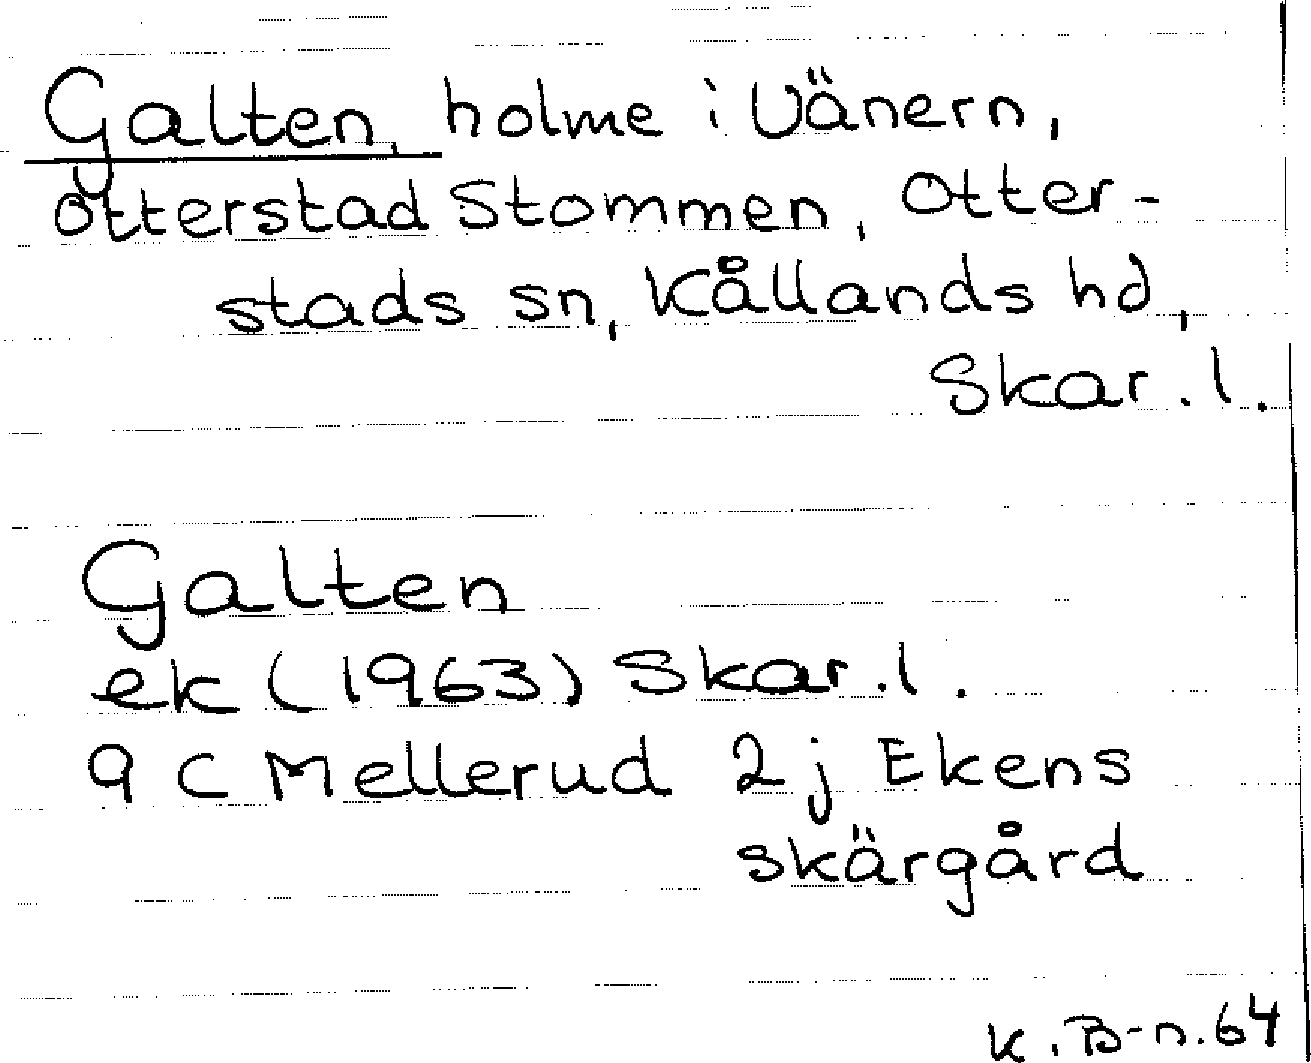 Galten, holme i Vänern,
Otterstad Stommen, Otter-
stads sn, Kållands hd,
Skar. l.
Galten
ek (1963) Skar. l.
9 C Mellerud 2j Ekens
skärgård
K. B-n. 64